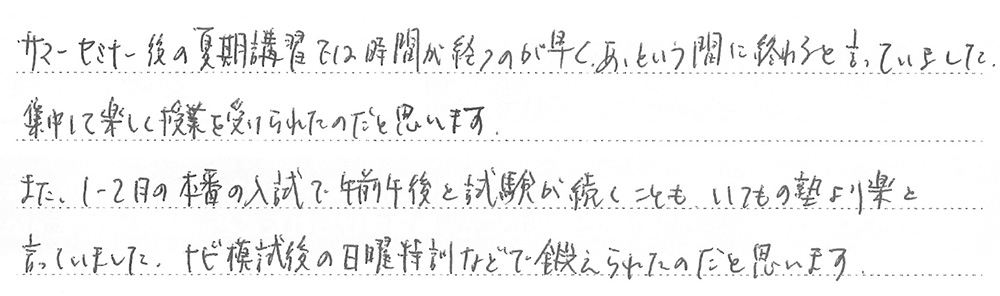 サマーセミナー後の夏期講習では時間が経つのが早く、あっという間に終わると言っていました。
集中して楽しく授業を受けられたのだと思います。
また、1-2月の本番の入試で午前午後と試験が続くことも、いつもの塾より楽と
言っていました。ナビ模試後の日曜特訓などで鍛えられたのだと思います。